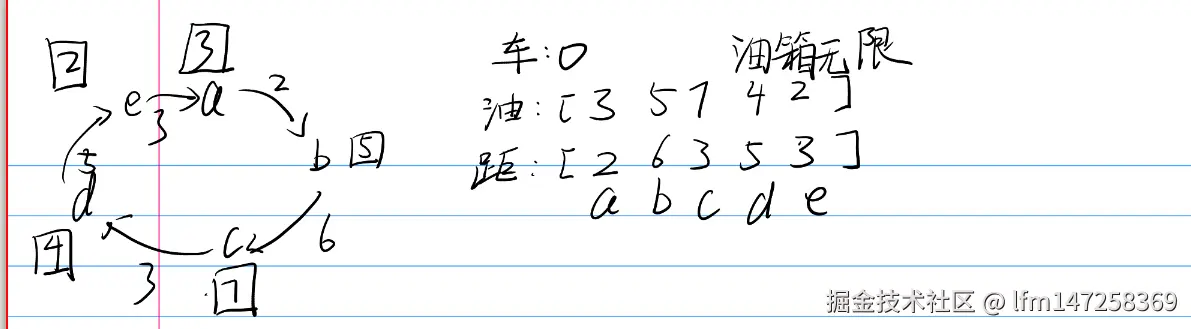 2 3 车:0 油箱无限
e 3 a 2 油:[ 3 5 7 4 2 ]
d 5 b 5 距:[ 2 6 3 5 3 ]
a b c d e
4 3 c 7 6
掘金技术社区 @ lfm147258369